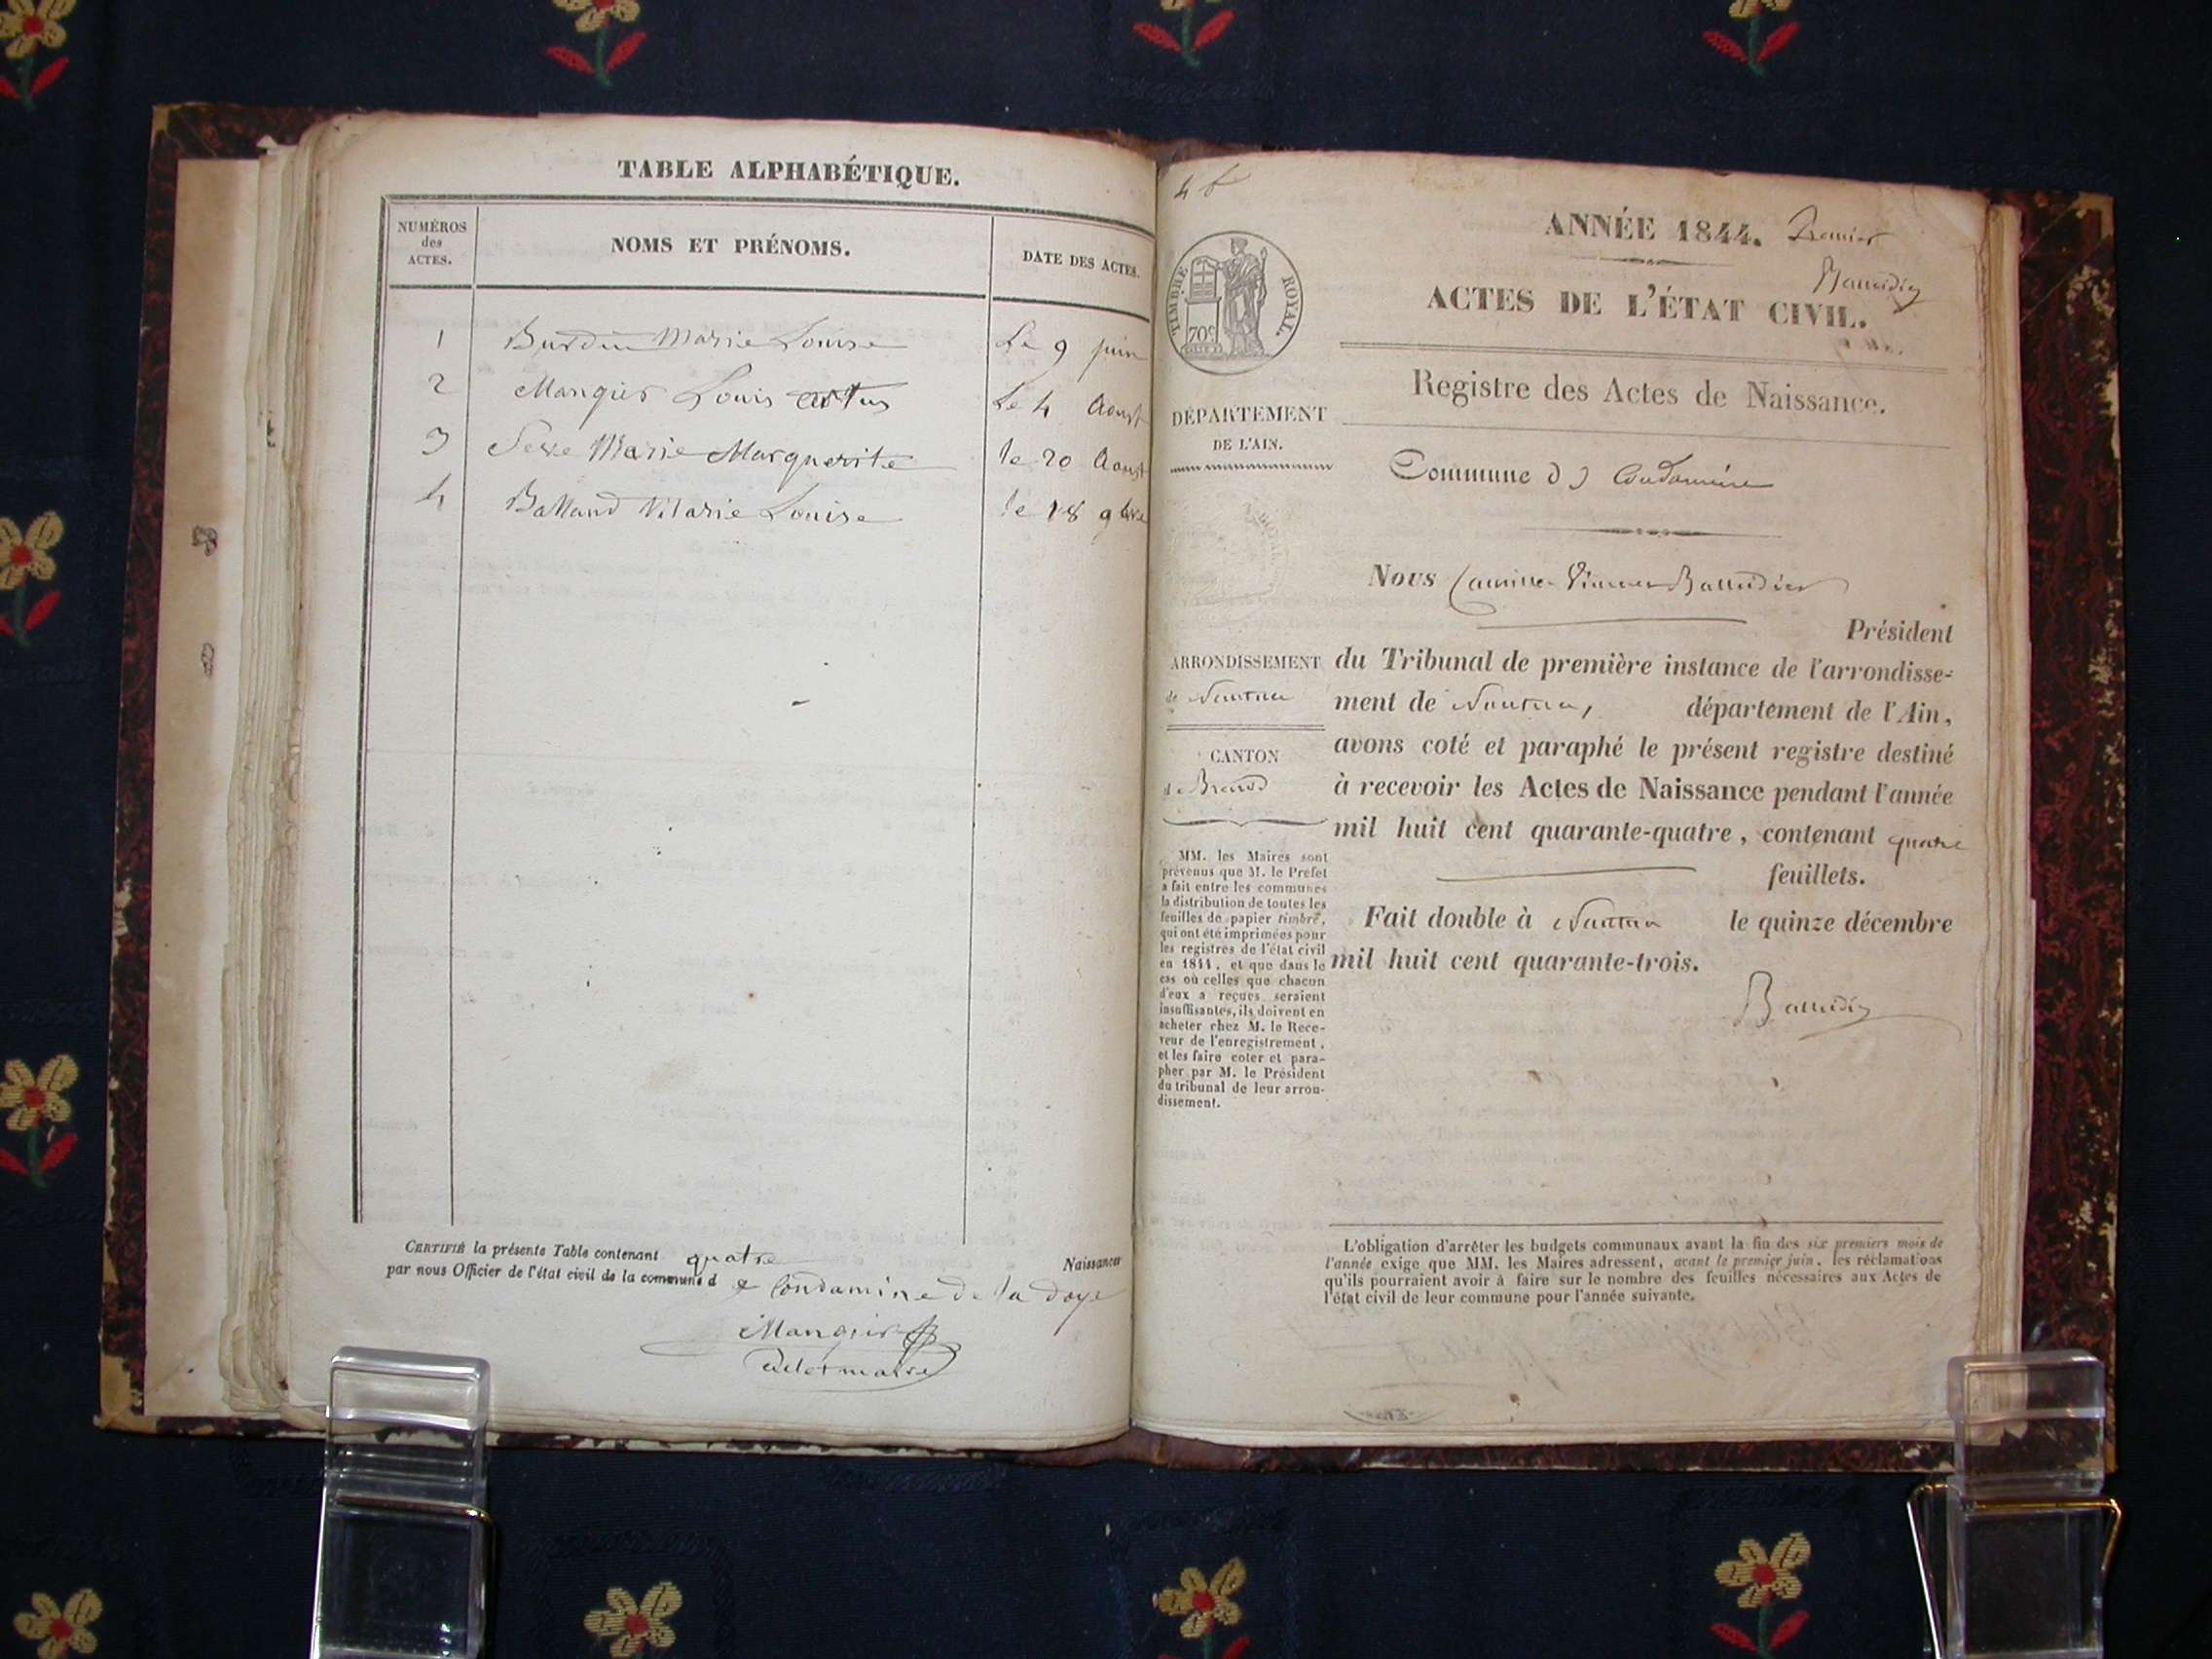 TABLE ALPHABÉTIQUE.
NUMÉROS
des
ACTES.
NOMS ET PRÉNOMS.
DATE DES ACTES.
1 Burdin Marie Louise Le 9 juin
2 Mangier Louis Le 4 Aoust
3 Marie Marguerite le 20 Aoust
4 Balland Marie Louise le 18 9bre
CERTIFIÉ la présente Table contenant quatre Naissances
par nous Officier de l'état civil de la commune de Condamine de la Doye
Mangier
4 f
ANNÉE 1844. Premier
ACTES DE L'ÉTAT CIVIL.
TIMBRE ROYAL.
70c
Registre des Actes de Naissance.
DÉPARTEMENT
DE L'AIN.
Commune d
Nous Camille
Président
ARRONDISSEMENT
de Nantua
CANTON
de Brenod
du Tribunal de première instance de l'arrondisse-
ment de Nantua, département de l'Ain,
avons coté et paraphé le présent registre destiné
à recevoir les Actes de Naissance pendant l'année
mil huit cent quarante-quatre, contenant quatre
feuillets.
Fait double à Nantua le quinze décembre
mil huit cent quarante-trois.
MM. les Maires sont
prévenus que M. le Préfet
a fait entre les communes
la distribution de toutes les
feuilles de papier timbré,
qui ont été imprimées pour
les registres de l'état civil
en 1844, et que dans le
cas où celles que chacun
d'eux a reçues seraient
insuffisantes, ils doivent en
acheter chez M. le Rece-
veur de l'enregistrement,
et les faire coter et para-
pher par M. le Président
du tribunal de leur arron-
dissement.
L'obligation d'arrêter les budgets communaux avant la fin des six premiers mois de
l'année exige que MM. les Maires adressent, avant le premier juin, les réclamations
qu'ils pourraient avoir à faire sur le nombre des feuilles nécessaires aux Actes de
l'état civil de leur commune pour l'année suivante.